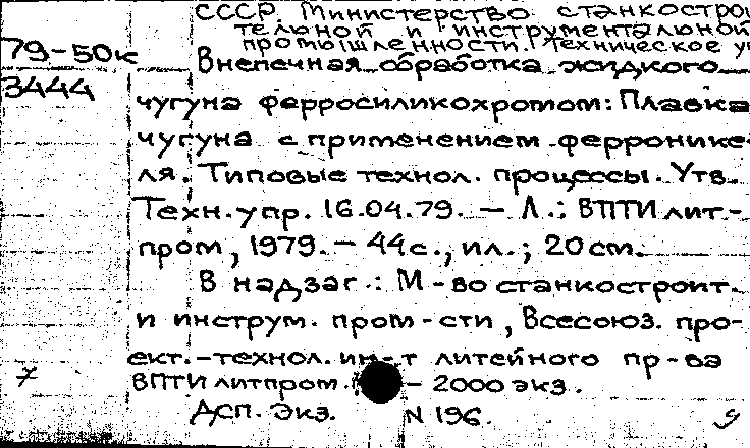 СССР. Министерство станкостро
тельной и инструментальной
промышленности. Техническое у
79-50к
Внепечная обработка жидкого
3444
чугуна ферросиликохромом: Плавка
чугуна с применением ферронике-
ля. Типовые технол. процессы. Утв.
Техн. упр. 16.04.79. — Л.: ВПТИлит-
пром, 1979. — 44с., ил.; 20см.
В надзаг.: М-во станкостроит.
и инструм. пром-сти, Всесоюз. про-
ект.-технол. ин-т литейного пр-ва
ВПТИлитпром. — 2000 экз.
Дсп. Экз. N 196.